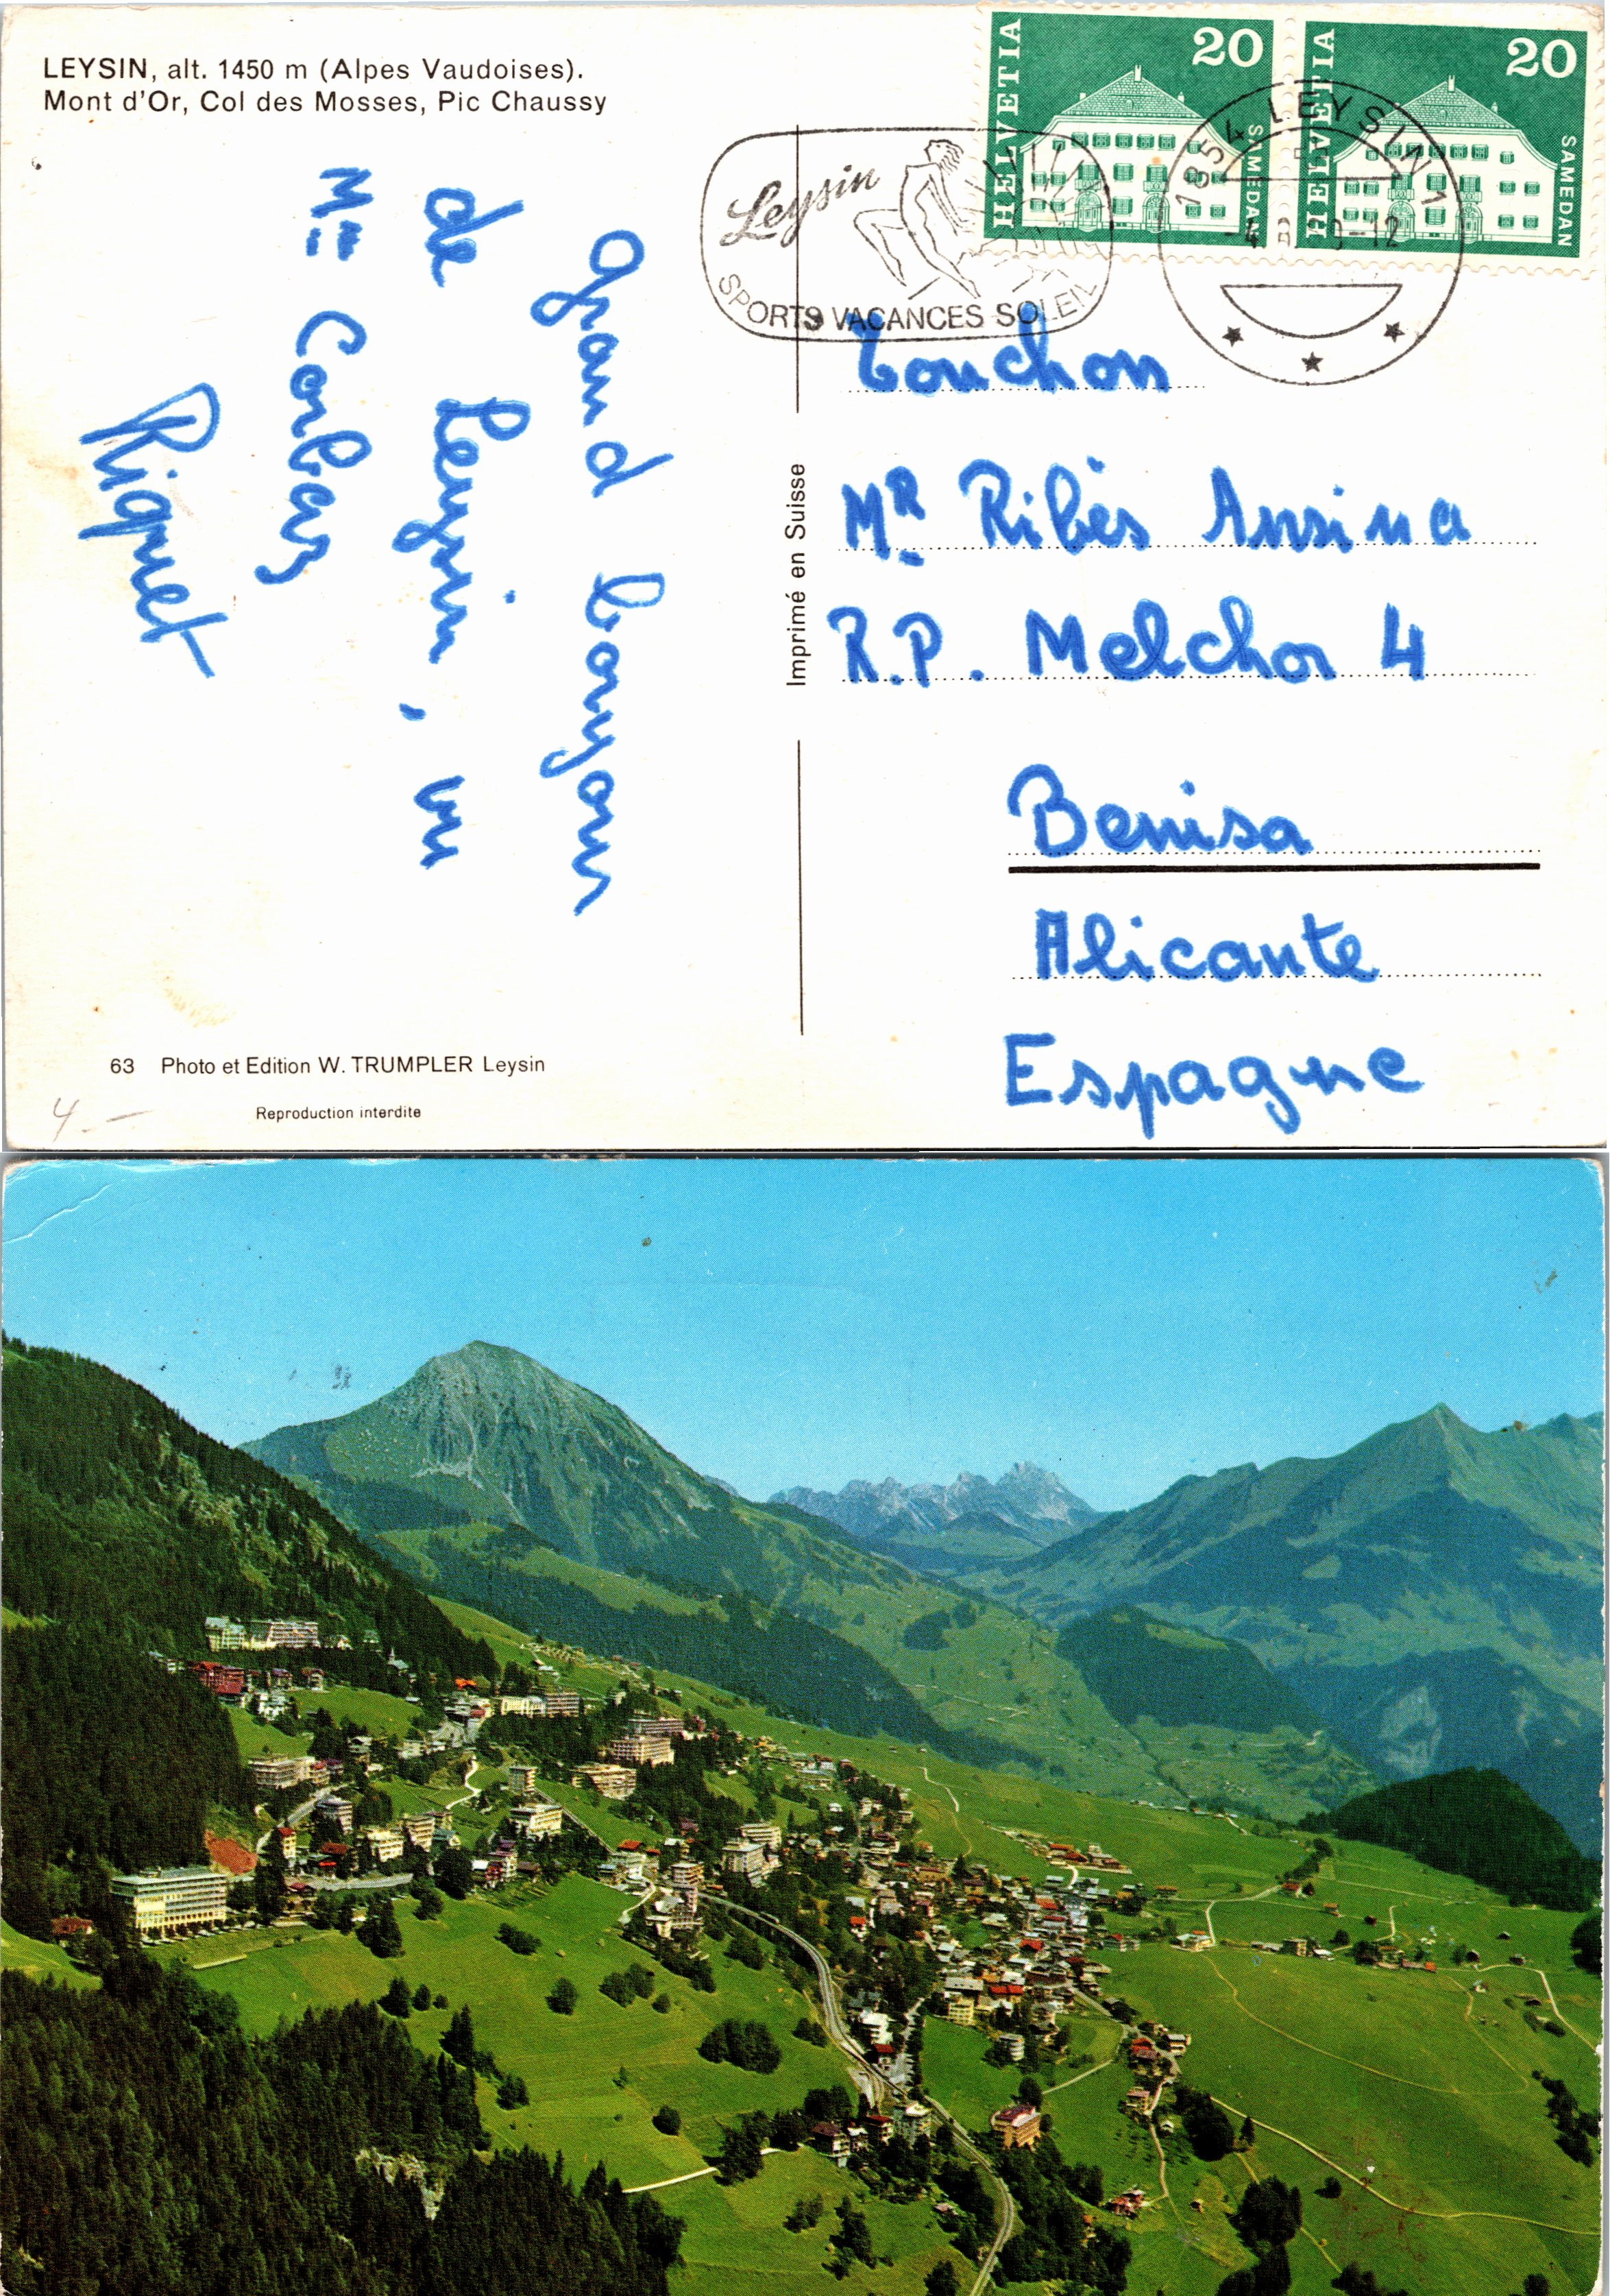 LEYSIN, alt. 1450 m (Alpes Vaudoises).
Mont d'Or, Col des Mosses, Pic Chaussy
HELVETIA
20
SAMEDAN
HELVETIA
20
SAMEDAN
Leysin
SPORTS VACANCES SOLEIL
1854 LEYSIN 1
Grand bonjour
de Leysin, vu
Mme Corbaz
Riquet
Imprimé en Suisse
Touchon
MR Ribès Ansina
R.P. Melchor 4
Benisa
Alicante
Espagne
63 Photo et Edition W. TRUMPLER Leysin
Reproduction interdite
4.-